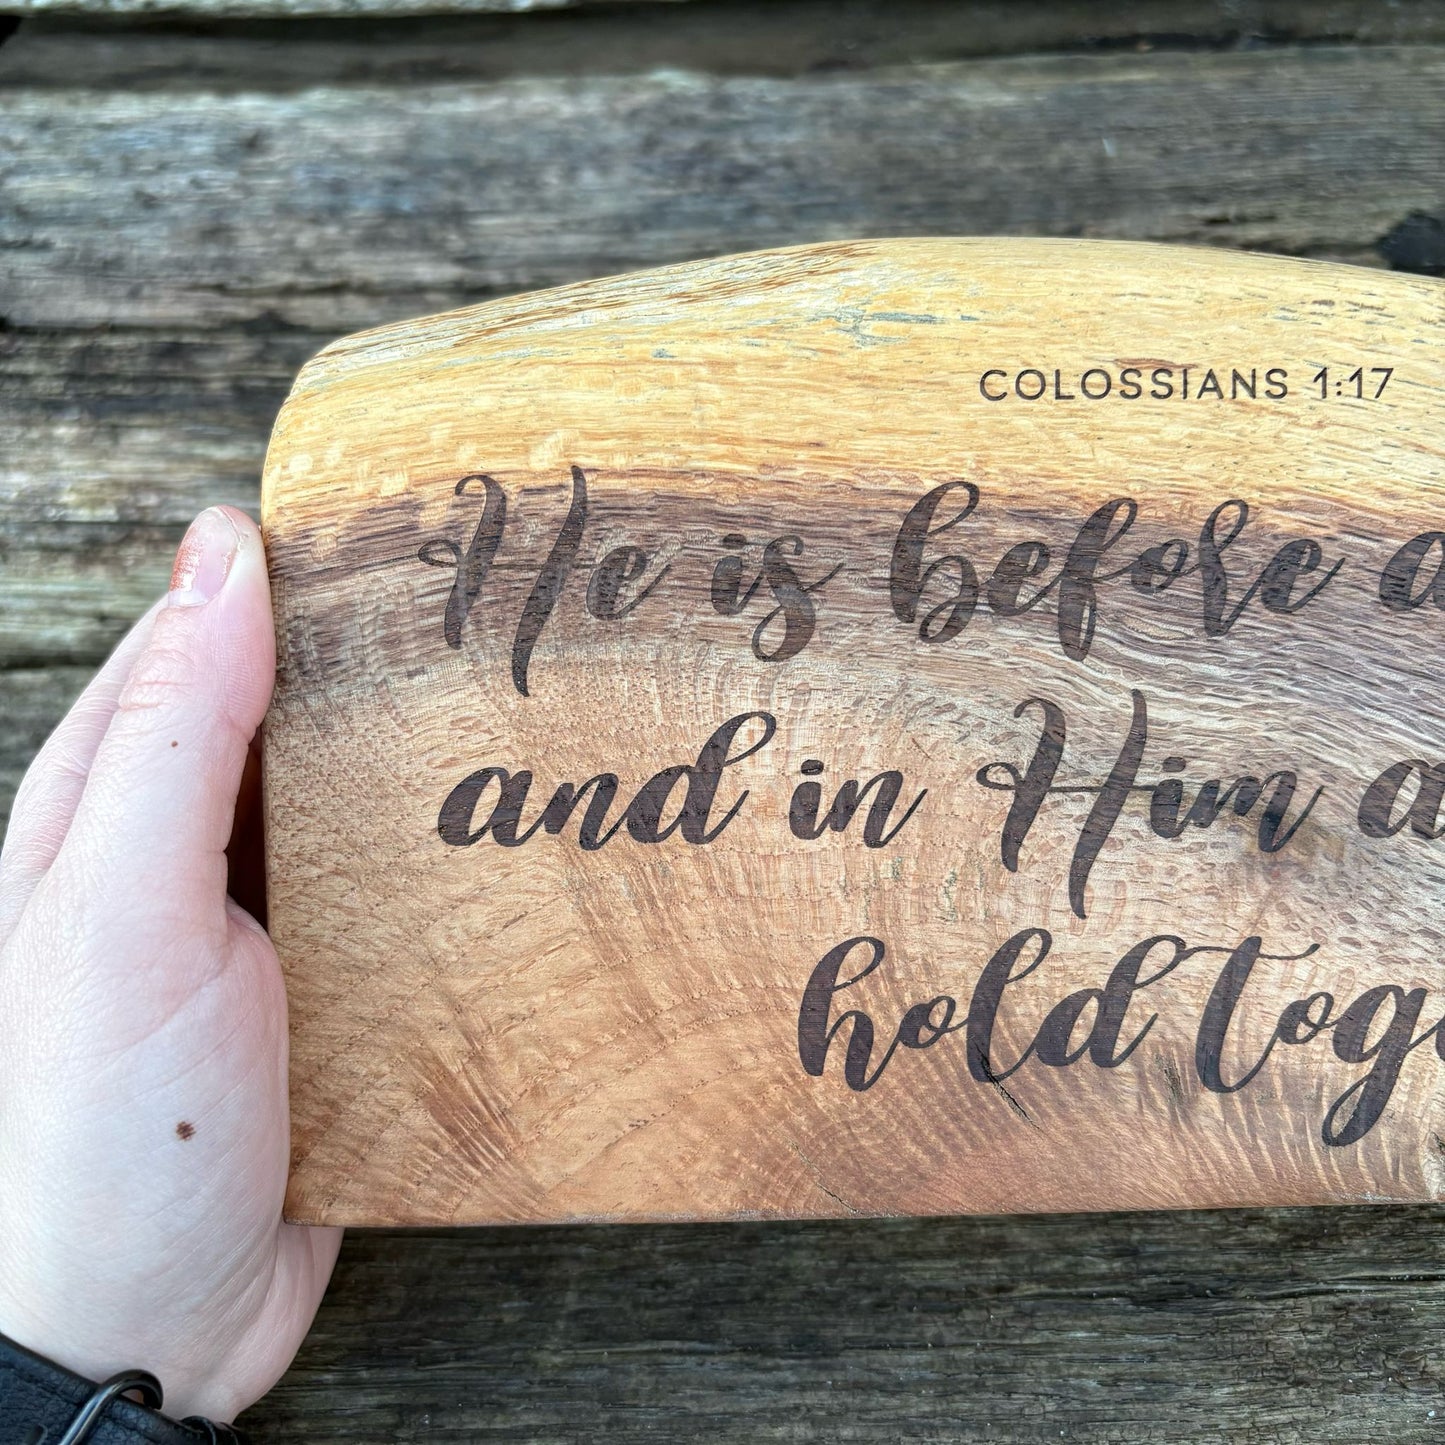 COLOSSIANS 1:17
He is before a
and in Him a
hold toge